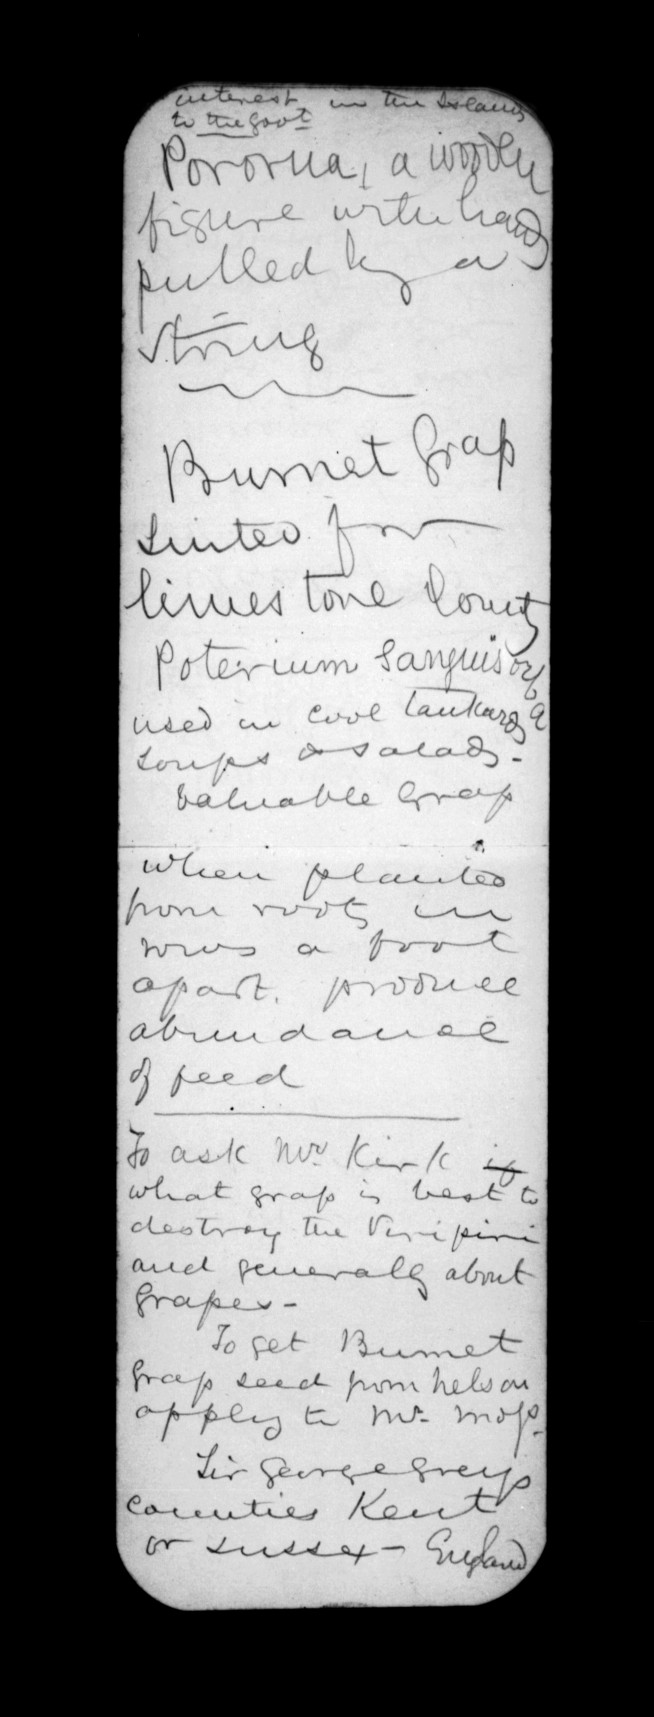 interest in the Islands
to the Govt
Pororua, a wooden
figure with hands
pulled by a
string
Burnet Grass
suited for
limestone County
Poterium Sanguisorba
used in cool tankards
soups & salads -
Valuable Grass
when planted
from roots in
rows a foot
apart. produce
abundance
of feed
To ask Mr Kirk if
what grass is best to
destroy the Piripiri
and generally about
Grasses -
To get Burnet
grass seed from Nelson
apply to Mr Moss.
Sir George Greys
counties Kent
or Sussex - England